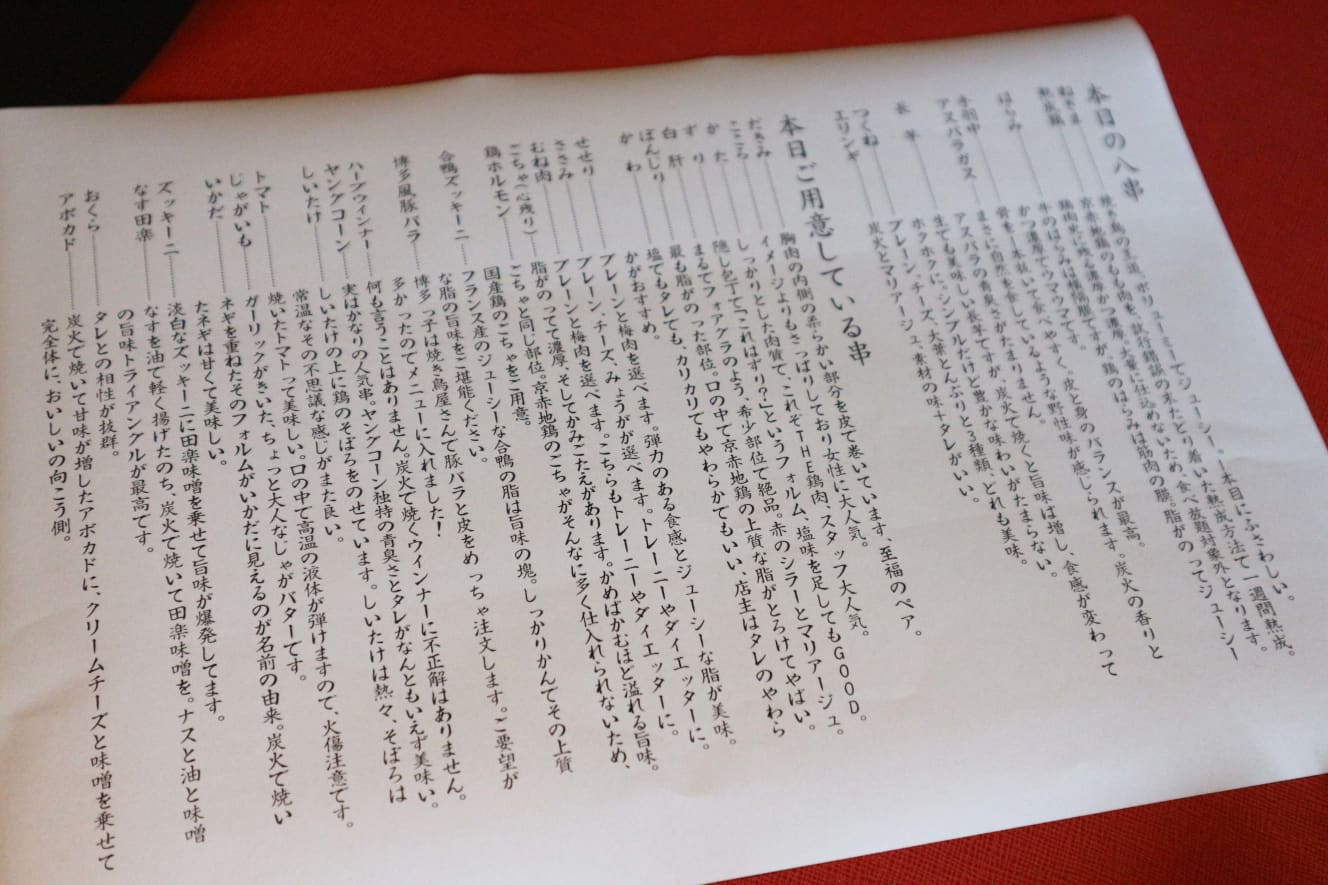 本日の八串
ねぎま 焼き鳥の王道、ボリューミーでジューシー。一本目にふさわしい。
熟成鶏 京赤地鶏のもも肉を、試行錯誤の末たどり着いた熟成方法で一週間熟成。
鶏肉史に残る濃厚かつ濃厚。大量に仕込めないため、食べ放題対象外となります。
はらみ 牛のはらみは横隔膜ですが、鶏のはらみは筋肉の膜。脂がのってジューシー
かつ濃厚でウマウマです。
手羽中 骨を一本抜いて食べやすく。皮と身のバランスが最高。
アスパラガス まさに自然を食しているような野性味が感じられます。炭火の香りと
アスパラの青臭さがたまりません。
長芋 生でも美味しい長芋ですが、炭火で焼くと旨味は増し、食感が変わって
ホクホクに。シンプルだけど豊かな味わいがたまらない。
つくね プレーン、チーズ、大葉とんぶりと3種類、どれも美味。
エリンギ 炭火とマリアージュ、素材の味+タレがいい。
本日ご用意している串
だきみ 胸肉の内側の柔らかい部分を皮で巻いています、至福のペア。
こころ イメージよりもさっぱりしており女性に大人気。
かた しっかりとした肉質で、これぞTHE鶏肉、スタッフ大人気。
ずり 隠し包丁で「これはずり?」というフォルム、塩味を足してもGOOD。
白肝 まるでフォアグラのよう、希少部位で絶品。赤のシラーとマリアージュ。
ぼんじり 最も脂がのった部位。口の中で京赤地鶏の上質な脂がとろけてやばい。
かわ 塩でもタレでも、カリカリでもやわらかでもいい、店主はタレのやわら
かがおすすめ。
せせり プレーンと梅肉を選べます。弾力のある食感とジューシーな脂が美味。
ささみ プレーン、チーズ、みょうがが選べます。トレーニーやダイエッターに。
むね肉 プレーンと梅肉を選べます。こちらもトレーニーやダイエッターに。
ごちゃ(心残り) 脂がのってて濃厚、そしてかみごたえがあります。かめばかむほど溢れる旨味。
鶏ホルモン ごちゃと同じ部位。京赤地鶏のごちゃがそんなに多く仕入れられないため、
国産鶏のごちゃをご用意。
合鴨ズッキーニ フランス産のジューシーな合鴨の脂は旨味の塊。しっかりかんでその上質
な脂の旨味をご堪能ください。
博多風豚バラ 博多っ子は焼き鳥屋さんで豚バラと皮をめっちゃ注文します。ご要望が
多かったのでメニューに入れました!
ハーブウィンナー 何も言うことはありません。炭火で焼くウインナーに不正解はありません。
ヤングコーン 実はかなりの人気串。ヤングコーン独特の青臭さとタレがなんともいえず美味い。
しいたけ しいたけの上に鶏のそぼろをのせています。しいたけは熱々、そぼろは
常温なその不思議な感じがまた良い。
トマト 焼いたトマトって美味しい。口の中で高温の液体が弾けますので、火傷注意です。
じゃがいも ガーリックがきいた、ちょっと大人なじゃがバターです。
いかだ ネギを重ねたそのフォルムがいかだに見えるのが名前の由来。炭火で焼い
たネギは甘くて美味しい。
ズッキーニ 淡白なズッキーニに田楽味噌を乗せて旨味が爆発してます。
なす田楽 なすを油で軽く揚げたのち、炭火で焼いて田楽味噌を。ナスと油と味噌
の旨味トライアングルが最高です。
おくら タレとの相性が抜群。
アボカド 炭火で焼いて甘味が増したアボカドに、クリームチーズと味噌を乗せて
完全体に、おいしいの向こう側。